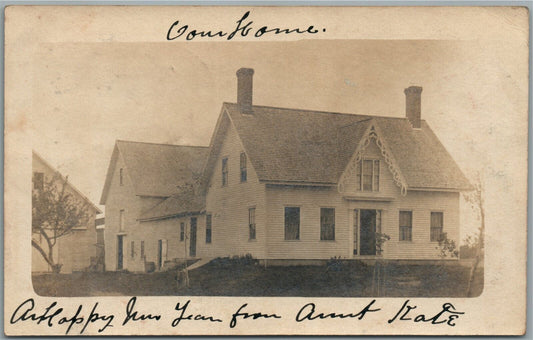 Our Home.
A Happy New Year from Aunt Kate